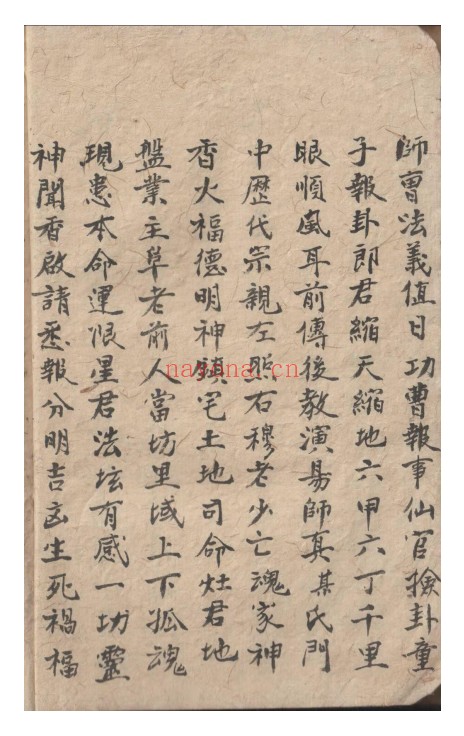 師曹法義值日功曹報事仙官撿卦童
子報卦郎君縮天縮地六甲六丁千里
眼順風耳前傳後教演易師真某氏門
中歷代宗親左昭右穆老少亡魂家神
香火福德明神鎮宅土地司命灶君地
盤業主阜老前人當坊里域上下孤魂
現患本命運限星君法坛有感一切靈
神聞香啟請悉報分明吉凶生死禍福
nayona.cn